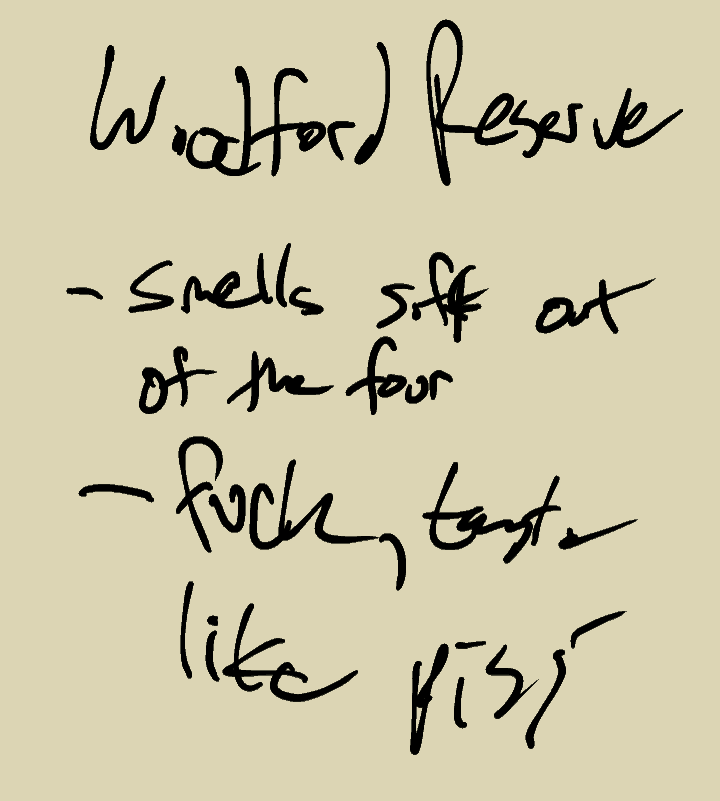 Woodford Reserve
- Smells soft out
of the four
- Fuck, taste
like piss